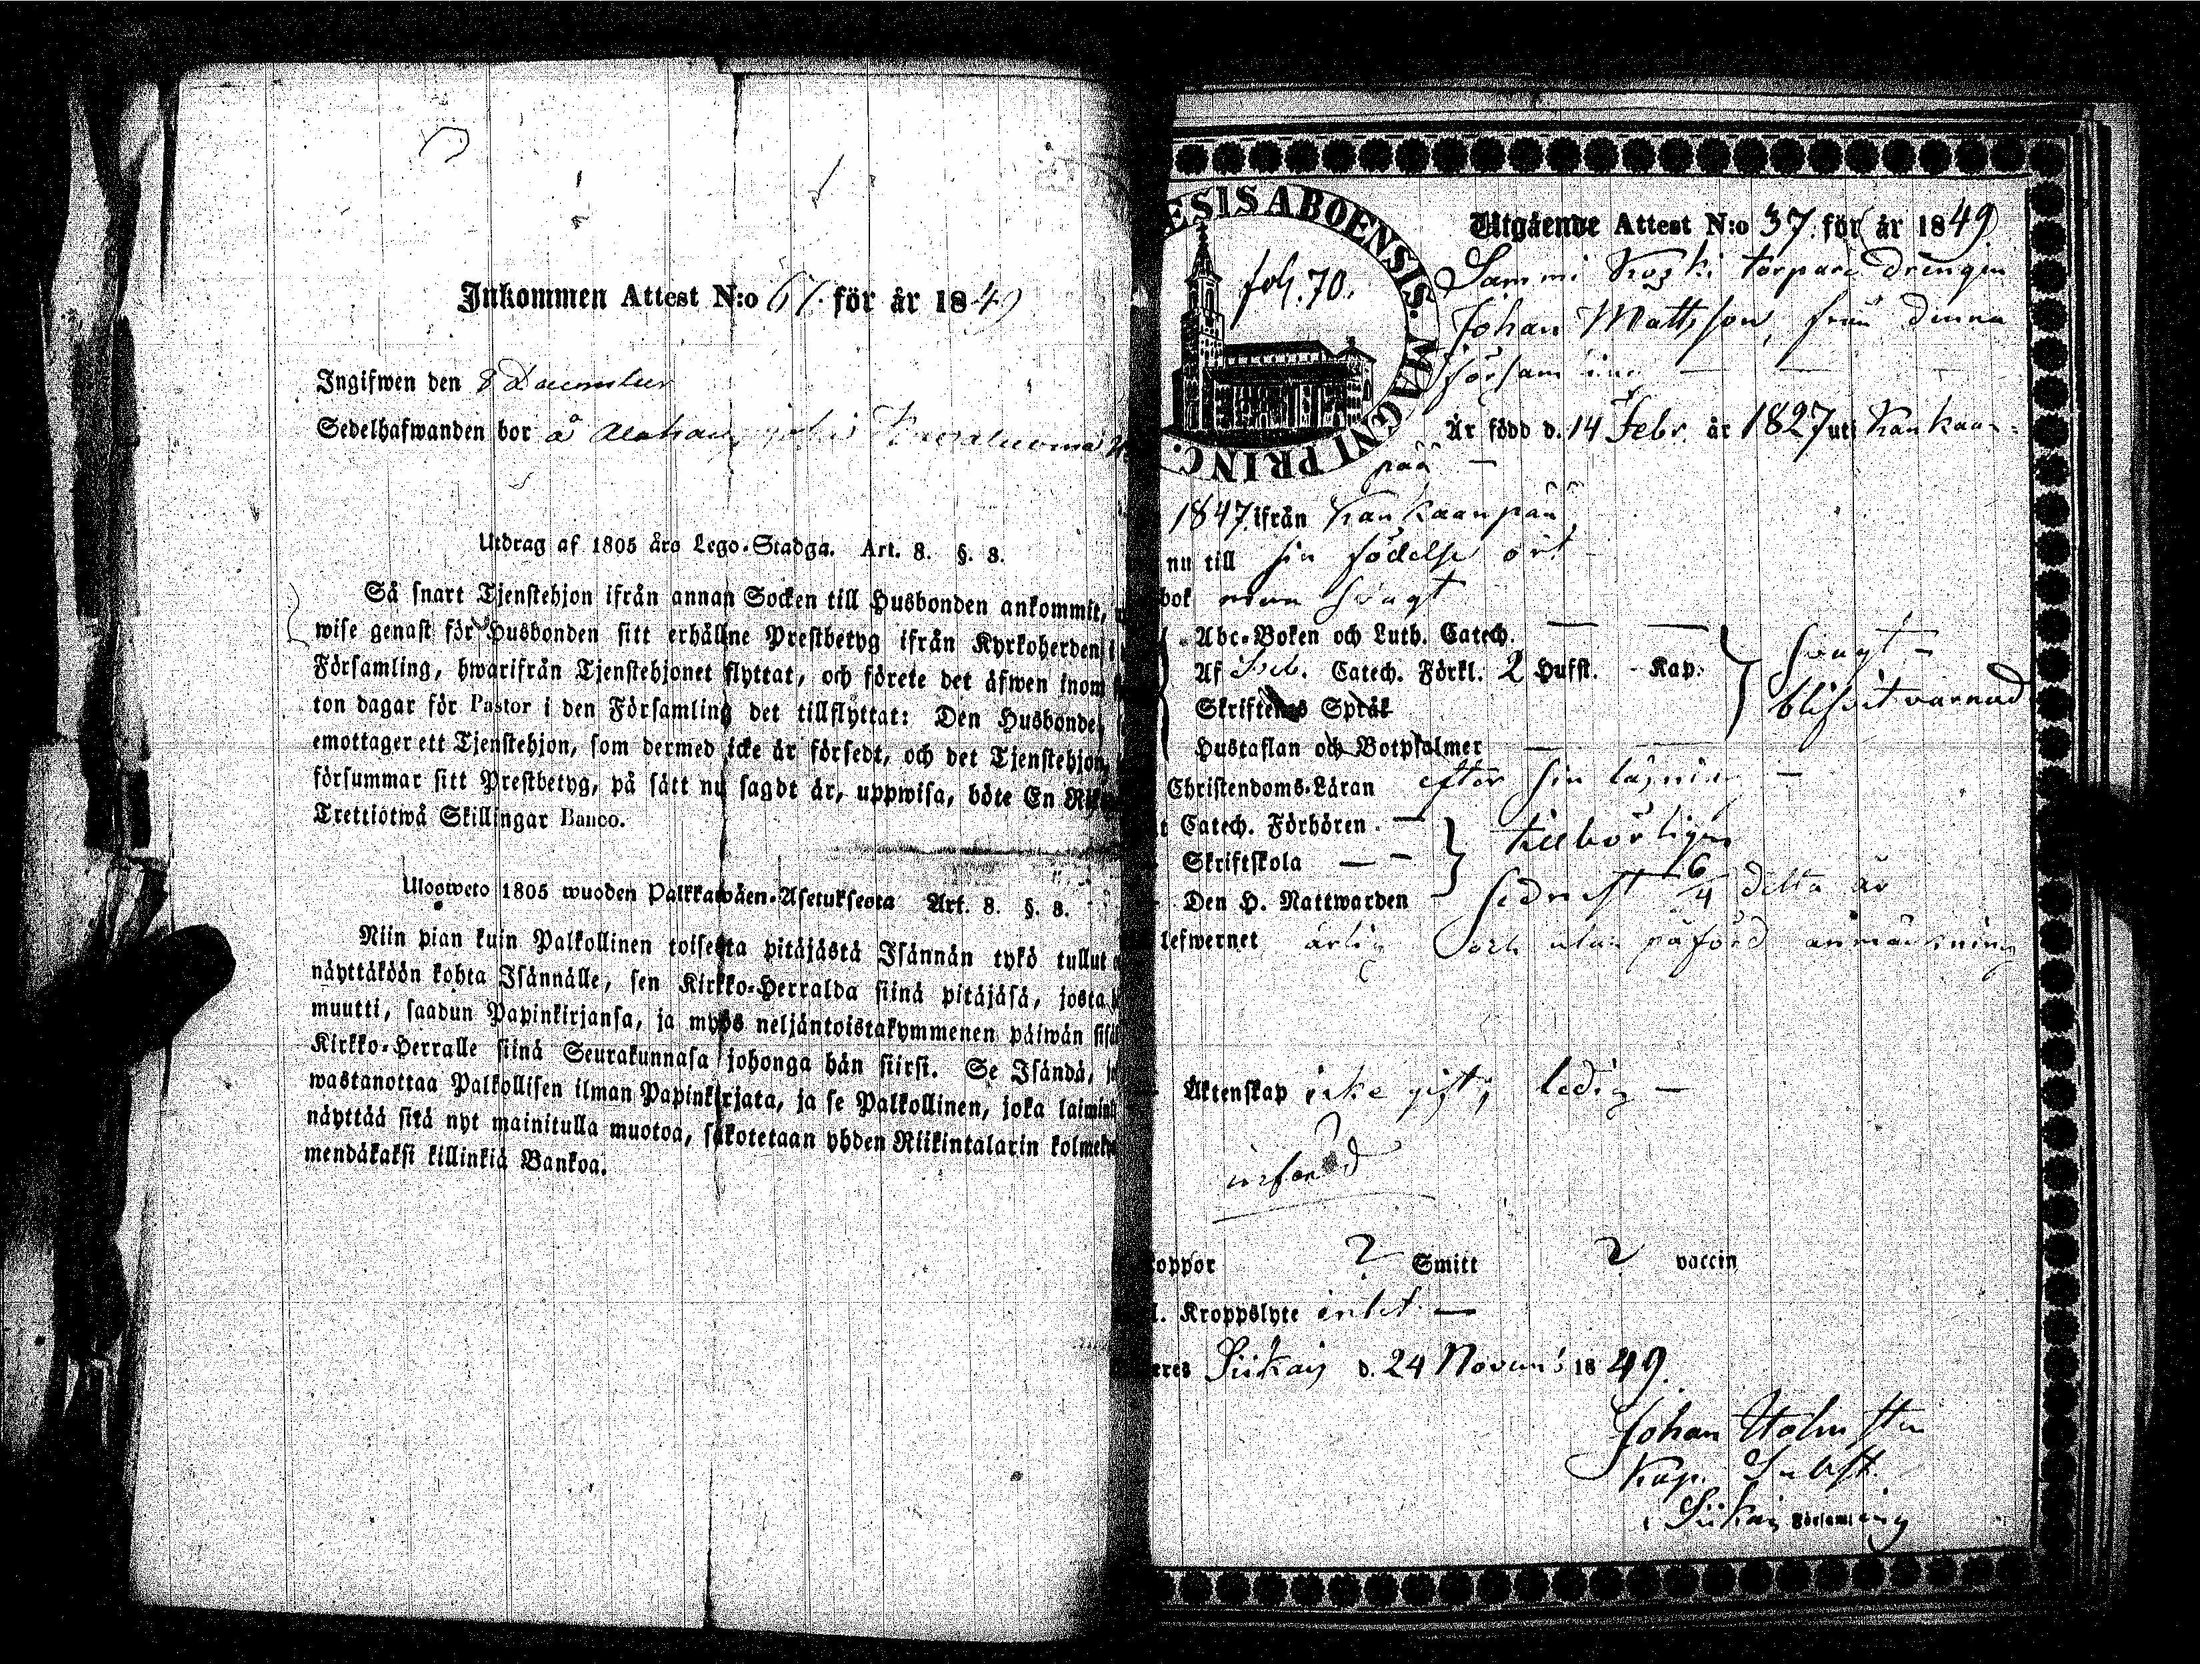 Inkommen Attest N:o 61. för år 1849
Ingifwen den 8 December
Sedelhafwanden bor å
Utdrag af 1805 års Lego-Stadga. Art. 8. §. 3.
Så snart Tjenstehjon ifrån annan Socken till Husbonden ankommit,
wise genast för Husbonden sitt erhållne Prestbetyg ifrån Kyrkoherden i
Församling, hwarifrån Tjenstehjonet flyttat, och förete det äfwen inom
ton dagar för Pastor i den Församling det tillflyttat: Den Husbonde,
emottager ett Tjenstehjon, som dermed icke är försedt, och det Tjenstehjon,
försummar sitt Prestbetyg, på sätt nu sagdt är, uppwisa, böte En
Trettiotwå Skillingar Banco.
Ulosweto 1805 wuoden Palkkawäen-Asetuksesta Art. 8. §. 3.
Niin pian kuin Palkollinen toisesta pitäjästä Isännän tykö tullut
näyttäköön kohta Isännälle, sen Kirkko-Herralda siinä pitäjäsä, josta
muutti, saadun Papinkirjansa, ja myös neljäntoistakymmenen päiwän
Kirkko-Herralle siinä Seurakunnasa johonga hän siirsi. Se Isändä,
wastanottaa Palkollisen ilman Papinkirjata, ja se Palkollinen, joka
näyttää sitä nyt mainitulla muotoa, sakotetaan yhden Riikintalarin
mendäkaksi killinkiä Bankoa.
ESIS ABOENSIS. MAGNI PRINC.
fol. 70.
Utgående Attest N:o 37. för år 1849
Sammi Koski torpare drengen
Johan Mattsson, från denna
församling
Är född d. 14 Febr. år 1827 uti Kankaan-
pää
1847. ifrån Kankaanpää,
nu till sin födelse ort
bok innan svagt
Abc-Boken och Luth. Catech.
Af Catech. Förkl. 2 Hufst. Kap. svagt
Skriftenes Språk blifvit varnad
Hustaflan och Botpsalmer
Christendoms-Läran efter sin läsning
Catech. Förhören
Skriftskola tillbörligen
Den H. Nattwarden sednast 16/4 detta år
lefwernet ärlig och utan påförd anmärkning
Äktenskap icke gift, ledig
koppor ? Smitt ? vaccin
Kroppslyte intet
Siikais d. 24 Novem: 1849.
Johan Holmsten
Kap. Subst.
i Siikais Församling